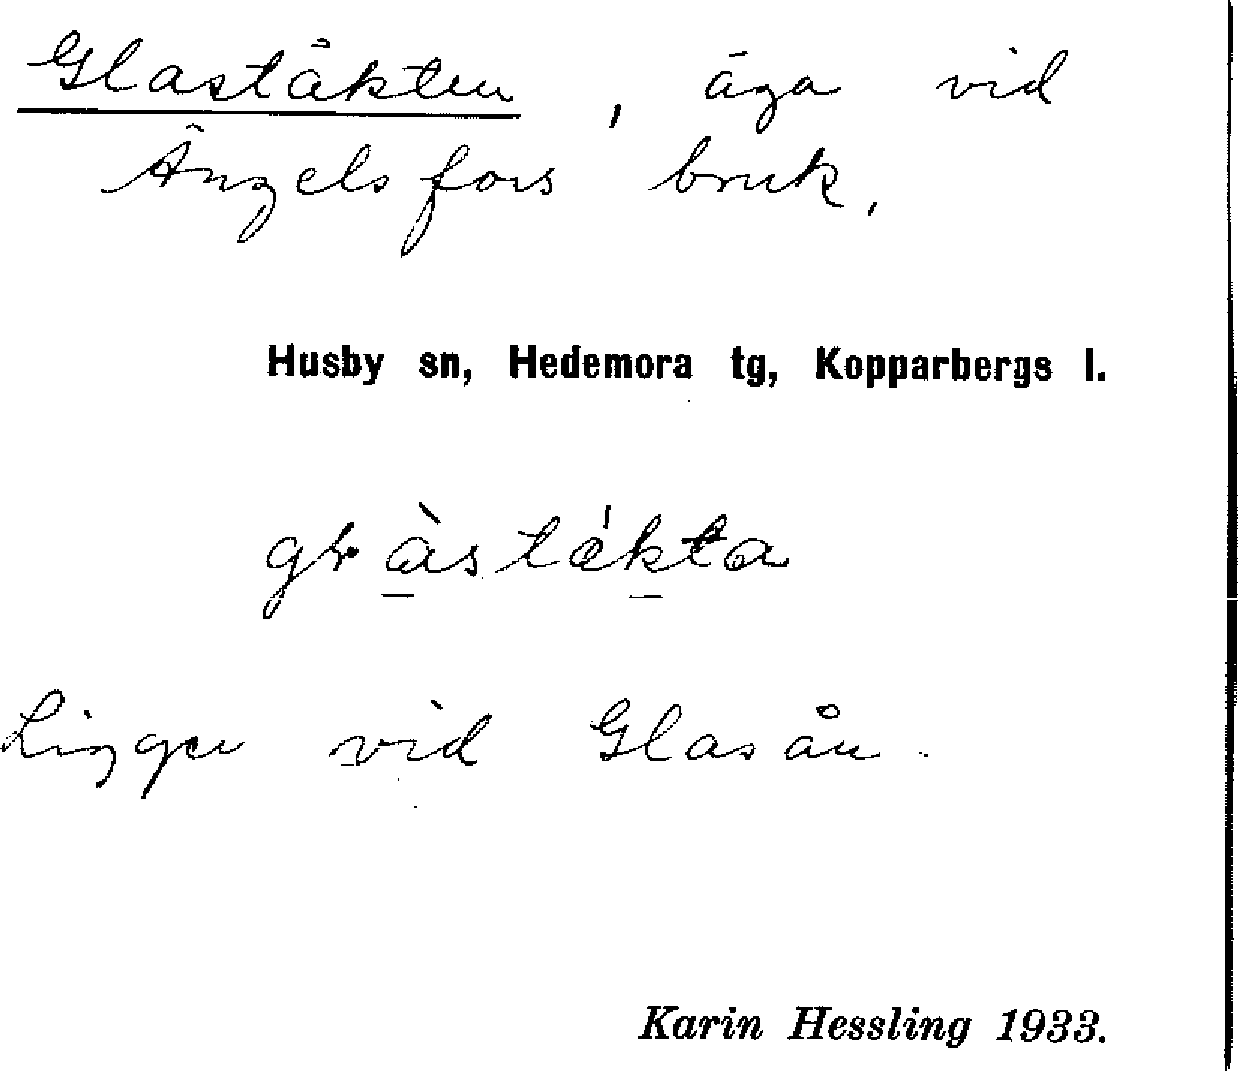 Glastäkten, äga vid
Ängelsfors bruk.
Husby sn, Hedemora tg, Kopparbergs l.
Ligger vid Glasån.
Karin Hessling 1933.